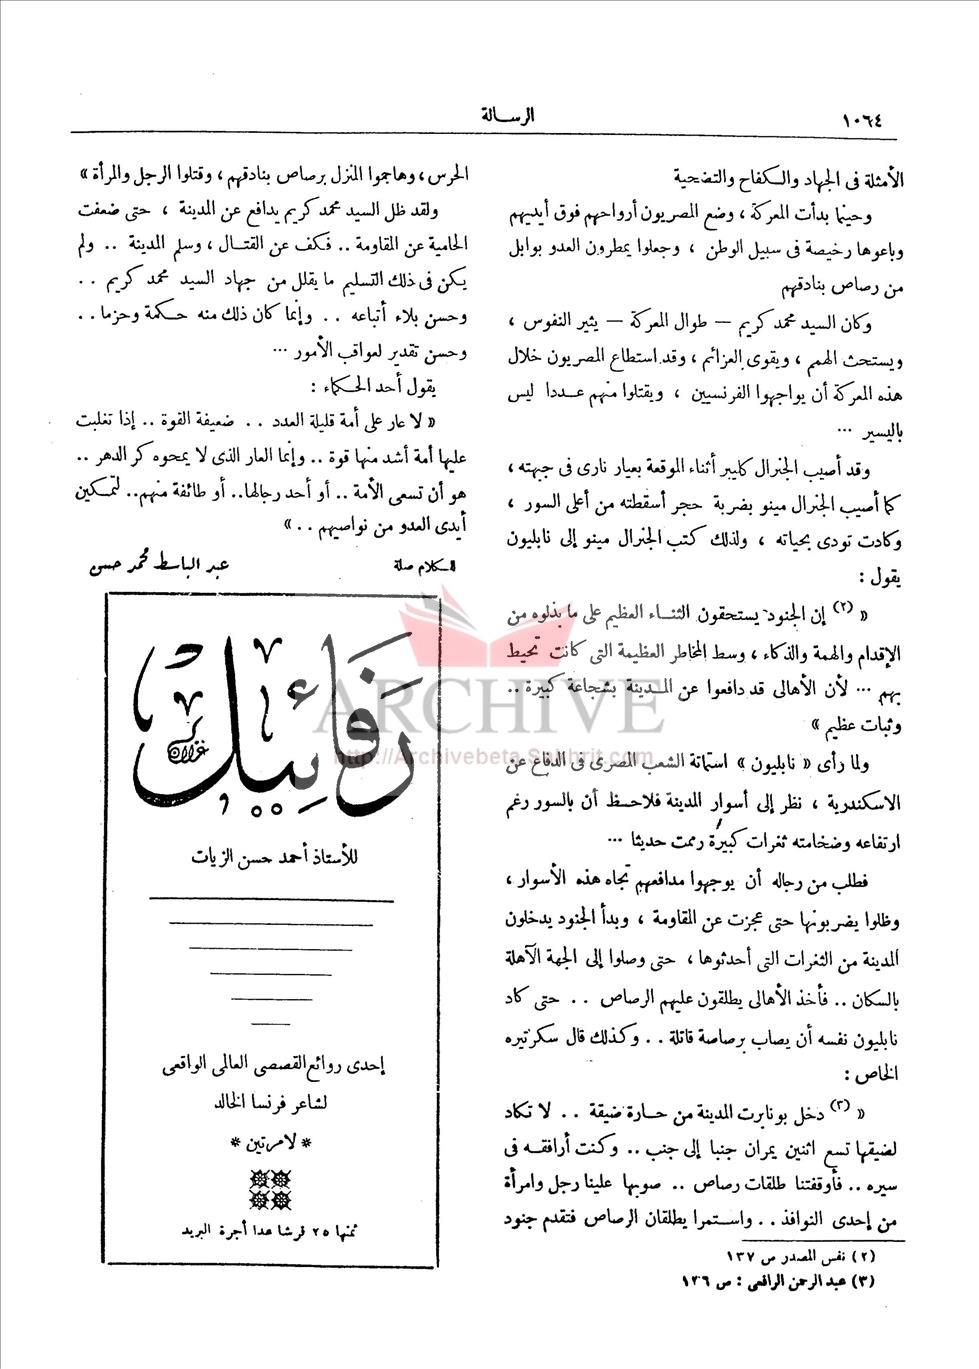 ١٠٦٤
الرسالة
الأمثلة فى الجهاد والكفاح والتضحية
وحينما بدأت المعركة ، وضع المصريون أرواحهم فوق أيديهم
وباعوها رخيصة فى سبيل الوطن ، وجعلوا يمطرون العدو بوابل
من رصاص بنادقهم
وكان السيد محمد كريم — طوال المعركة — يثير النفوس ،
ويستحث الهمم ، ويقوى العزائم ، وقد استطاع المصريون خلال
هذه المعركة أن يواجهوا الفرنسيين ، ويقتلوا منهم عددا ليس
باليسير ...
وقد أصيب الجنرال كليبر أثناء الموقعة بعيار نارى فى جبهته ،
كما أصيب الجنرال مينو بضربة حجر أسقطته من أعلى السور ،
وكادت تودى بحياته ، ولذلك كتب الجنرال مينو إلى نابليون
يقول :
« (٢) إن الجنود يستحقون الثناء العظيم على ما بذلوه من
الإقدام والهمة والذكاء ، وسط المخاطر العظيمة التى كانت تحيط
بهم ... لأن الأهالى قد دافعوا عن المدينة بشجاعة كبيرة ..
وثبات عظيم »
ولما رأى « نابليون » استماتة الشعب المصرى فى الدفاع عن
الاسكندرية ، نظر إلى أسوار المدينة فلاحظ أن بالسور رغم
ارتفاعه وضخامته ثغرات كبيرة رممت حديثا ...
فطلب من رجاله أن يوجهوا مدافعهم تجاه هذه الأسوار ،
وظلوا يضربونها حتى عجزت عن المقاومة ، وبدأ الجنود يدخلون
المدينة من الثغرات التى أحدثوها ، حتى وصلوا إلى الجهة الآهلة
بالسكان .. فأخذ الأهالى يطلقون عليهم الرصاص .. حتى كاد
نابليون نفسه أن يصاب برصاصة قاتلة .. وكذلك قال سكرتيره
الخاص :
« (٣) دخل بونابرت المدينة من حارة ضيقة .. لا تكاد
لضيقها تسع اثنين يمران جنبا إلى جنب .. وكنت أرافقه فى
سيره .. فأوقفتنا طلقات رصاص .. صوبها علينا رجل وامرأة
من إحدى النوافذ .. واستمرا يطلقان الرصاص فتقدم جنود
(٢) نفس المصدر ص ١٣٧
(٣) عبد الرحمن الرافعى : ص ١٣٦
الحرس ، وهاجموا المنزل برصاص بنادقهم ، وقتلوا الرجل والمرأة »
ولقد ظل السيد محمد كريم يدافع عن المدينة ، حتى ضعفت
الحامية عن المقاومة .. فكف عن القتال ، وسلم المدينة .. ولم
يكن فى ذلك التسليم ما يقلل من جهاد السيد محمد كريم ..
وحسن بلاء أتباعه .. وإنما كان ذلك منه حكمة وحزما ..
وحسن تقدير لعواقب الأمور ...
يقول أحد الحكماء :
« لا عار على أمة قليلة العدد .. ضعيفة القوة .. إذا تغلبت
عليها أمة أشد منها قوة .. وإنما العار الذى لا يمحوه كر الدهر ..
هو أن تسعى الأمة .. أو أحد رجالها .. أو طائفة منهم .. لتمكين
أيدى العدو من نواصيهم .. »
للكلام صلة
عبد الباسط محمد حسن
رفائيل
غزلان
للأستاذ أحمد حسن الزيات
إحدى روائع القصصى العالمى الواقعى
لشاعر فرنسا الخالد
* لامرتين *
ثمنها ٢٥ قرشا عدا أجرة البريد
ARCHIVE
http://Archivebeta.Sakhrit.com